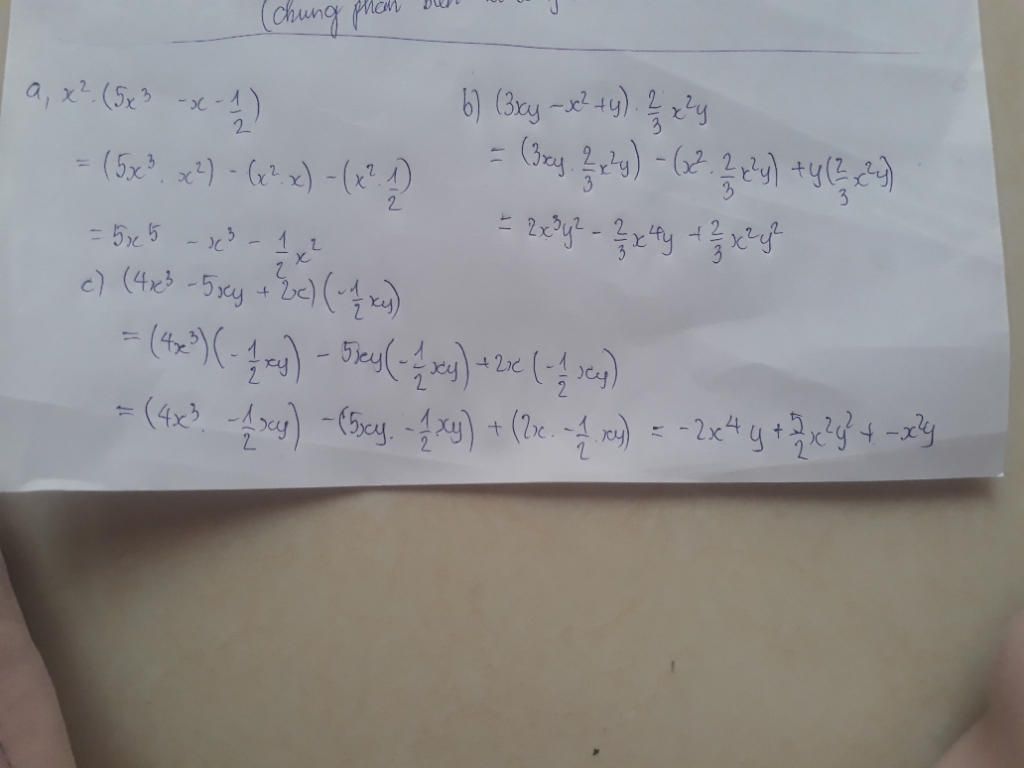 (chung phần
a, x². (5x³ - x - 1/2)
= (5x³ . x²) - (x² . x) - (x² . 1/2)
= 5x⁵ - x³ - 1/2 x²
b) (3xy - x² + y) . 2/3 x²y
= (3xy . 2/3 x²y) - (x² . 2/3 x²y) + y(2/3 x²y)
= 2x³y² - 2/3 x⁴y + 2/3 x²y²
c) (4x³ - 5xy + 2x) (-1/2 xy)
= (4x³) (-1/2 xy) - 5xy (-1/2 xy) + 2x (-1/2 xy)
= (4x³ . -1/2 xy) - (5xy . -1/2 xy) + (2x . -1/2 xy) = -2x⁴y + 5/2 x²y² + -x²y